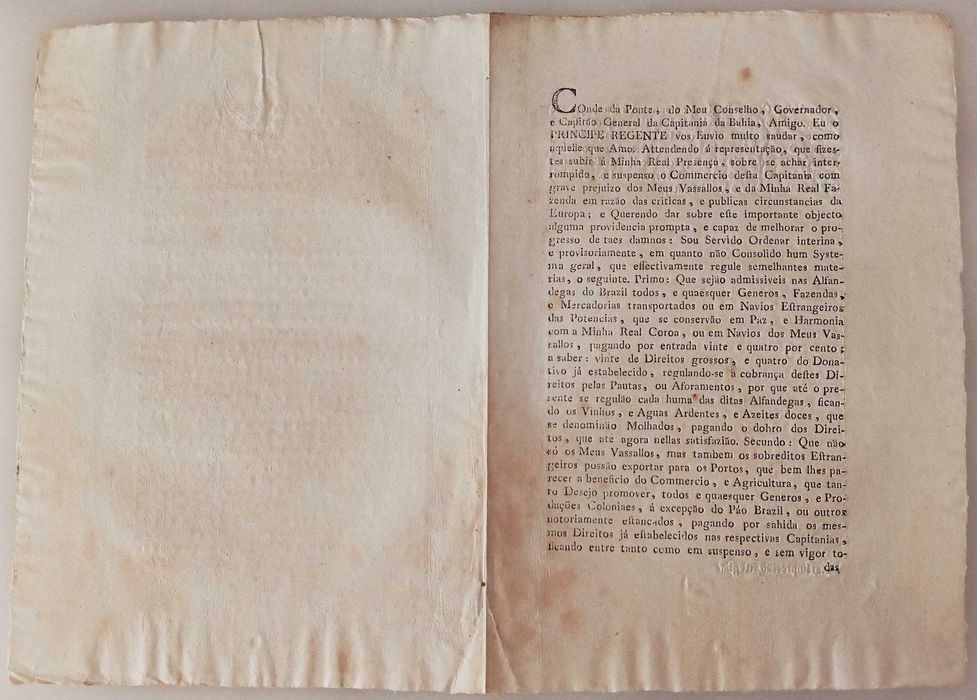 COnde da Ponte, do Meu Conselho, Governador,
e Capitão General da Capitanía da Bahia, Amigo. Eu o
PRINCIPE REGENTE vos Envio muito saudar, como
aquelle que Amo. Attendendo á representação, que fizes-
tes subir á Minha Real Presença, sobre se achar inter-
rompido, e suspenso o Commercio desta Capitania com
grave prejuizo dos Meus Vassallos, e da Minha Real Fa-
zenda em razão das criticas, e publicas circunstancias da
Europa; e Querendo dar sobre este importante objecto
alguma providencia prompta, e capaz de melhorar o pro-
gresso de taes damnos: Sou Servido Ordenar interina,
e provisoriamente, em quanto não Consolido hum Syste-
ma geral, que effectivamente regule semelhantes mate-
rias, o seguinte. Primo: Que sejão admissiveis nas Alfan-
degas do Brazil todos, e quaesquer Generos, Fazendas,
e Mercadorias transportados ou em Navios Estrangeiros
das Potencias, que se conservão em Paz, e Harmonia
com a Minha Real Coroa, ou em Navios dos Meus Vas-
sallos, pagando por entrada vinte e quatro por cento;
a saber: vinte de Direitos grossos, e quatro do Dona-
tivo já estabelecido, regulando-se a cobrança destes Di-
reitos pelas Pautas, ou Aforamentos, por que até o pre-
sente se regulão cada huma das ditas Alfandegas, fican-
do os Vinhos, e Aguas Ardentes, e Azeites doces, que
se denominão Molhados, pagando o dobro dos Direi-
tos, que até agora nellas satisfazião. Secundo: Que não
só os Meus Vassallos, mas tambem os sobreditos Estran-
geiros possão exportar para os Portos, que bem lhes pa-
recer a beneficio do Commercio, e Agricultura, que tan-
to Desejo promover, todos e quaesquer Generos, e Pro-
duções Coloniaes, á excepção do Páo Brazil, ou outros
notoriamente estancados, pagando por sahida os mes-
mos Direitos já estabelecidos nas respectivas Capitanias,
ficando entre tanto como em suspenso, e sem vigor to-
das